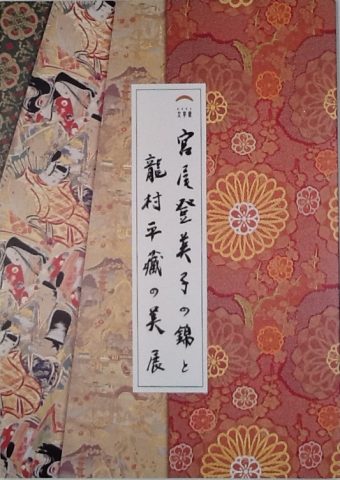 文学館
宮尾登美子の錦と
龍村平藏の美展